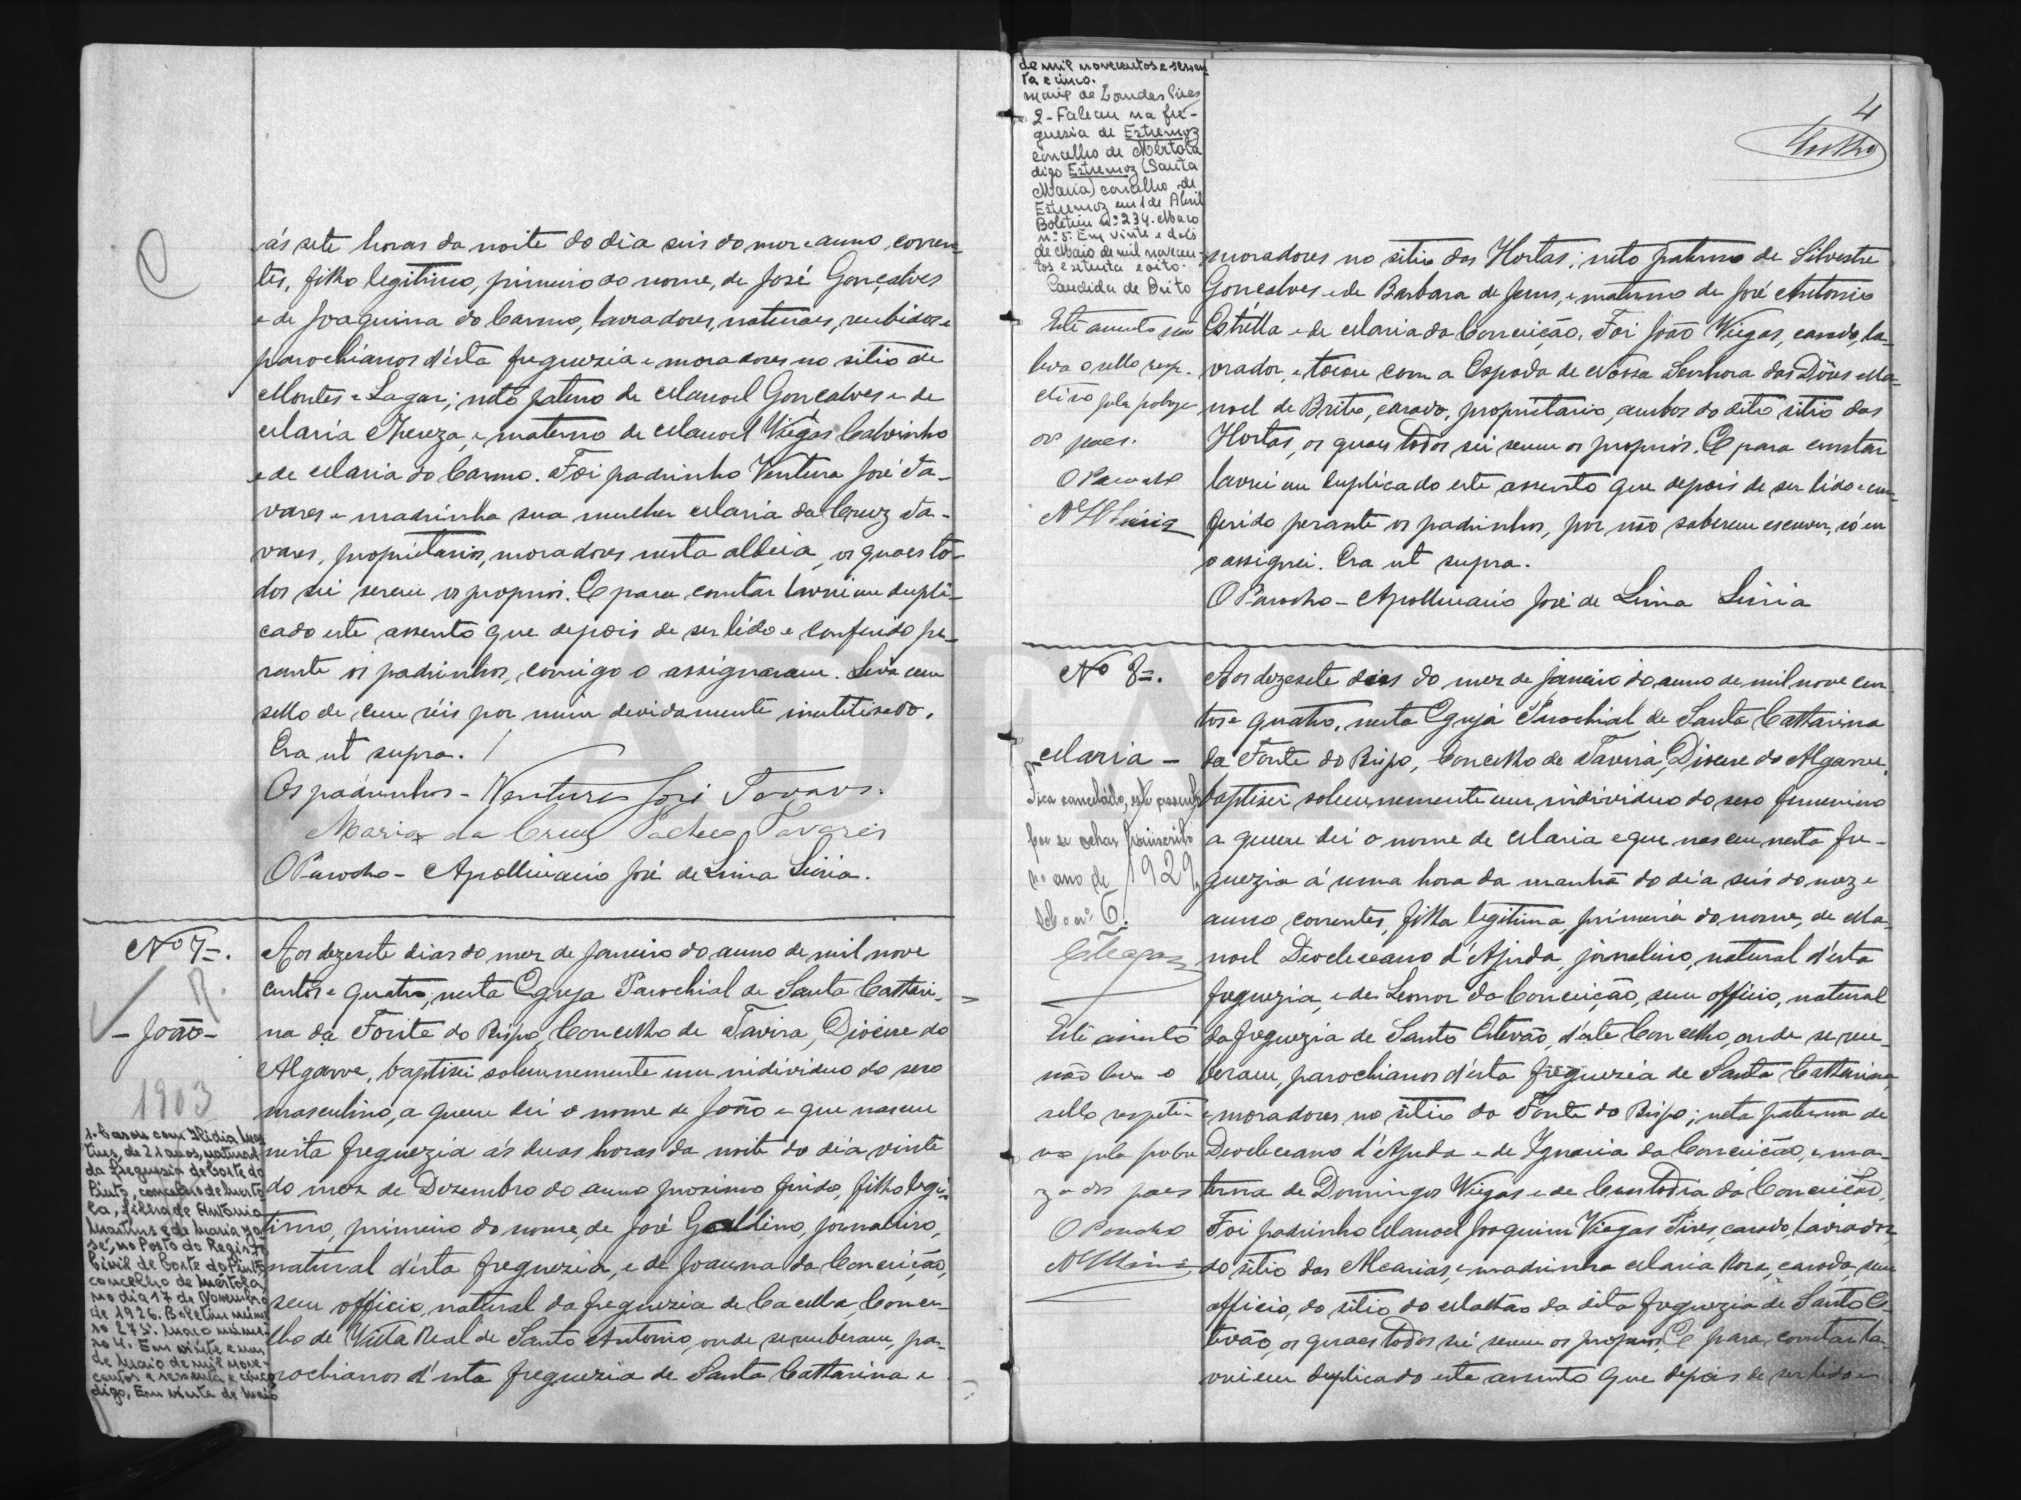 ás sete horas da noite do dia seis do mez e anno corren-
tes, filho legitimo, primeiro do nome, de José Gonçalves
e de Joaquina do Carmo, lavradores, naturaes, recebidos e
parochianos d'esta freguezia e moradores no sitio de
Montes e Lagar; neto paterno de Manoel Gonçalves e de
Maria Thereza, e materno de Manoel Viegas Calvinho
e de Maria do Carmo. Foi padrinho Ventura José Ta-
vares e madrinha sua mulher Maria da Cruz Ta-
vares, proprietarios, moradores nesta aldeia, os quaes to-
dos sei serem os proprios. E para constar lavrei em dupli-
cado este assento que depois de ser lido e conferido pe-
rante os padrinhos, comigo o assignaram. Leva um
sello de cem réis por mim devidamente inutilisado.
Era ut supra.
Os padrinhos - Ventura José Tavares.
Maria da Cruz Pacheco Tavares
O Parocho - Apollinario José de Lima Liria.
Nº 7.
- João -
1903
1 - Casou com Ilidia Mar
tins, de 21 anos, natural
da freguesia de Corte do
Pinto, concelho de Merto
la, filha de Antonio
Martins e de Maria Jo
sé, no Posto do Registo
Civil de Corte do Pinto
concelho de Mértola,
no dia 17 de Novembro
de 1926. Boletim núme
ro 275. Maço núme-
ro 4. Em vinte e um
de Maio de mil nove-
centos e sessenta e cinco
digo, Em vinte de Maio
Aos dezesete dias do mez de Janeiro do anno de mil nove
centos e quatro, nesta Egreja Parochial de Santa Cathari-
na da Fonte do Bispo, Concelho de Tavira, Diocese do
Algarve, baptisei solemnemente um individuo do sexo
masculino, a quem dei o nome de João e que nasceu
nesta freguezia ás duas horas da noite do dia vinte
do mez de Dezembro do anno proximo findo, filho legi-
timo, primeiro do nome, de José Galdino, jornaleiro,
natural d'esta freguezia, e de Joanna da Conceição,
sem officio, natural da freguezia de Cacella Conce-
lho de Villa Real de Santo Antonio, onde se receberam, pa-
rochianos d'esta freguezia de Santa Catharina e
de mil novecentos e sessen
ta e cinco.
Maria de Lourdes Pires
2 - Faleceu na fre-
guesia de Estremoz
concelho de Mértola
digo Estremoz (Santa
Maria) concelho de
Estremoz em 1 de Abril
Boletim nº 234. Maço
nº 5. Em vinte e dois
de Maio de mil novecen-
tos e setenta e oito.
Candida de Brito
4
moradores no sitio das Hortas; neto paterno de Silvestre
Gonçalves e de Barbara de Jesus, e materno de José Antonio
Estrella e de Maria da Conceição. Foi João Viegas, casado, la-
vrador, e tocou com a Espada de Nossa Senhora das Dôres Ma-
noel de Brito, casado, proprietario, ambos do dito sitio das
Hortas, os quaes todos sei serem os proprios. E para constar
lavrei em duplicado este assento que depois de ser lido e con-
ferido perante os padrinhos, por não saberem escrever, só eu
o assignei. Era ut supra.
O Parocho - Apollinario José de Lima Liria
Este assento não
leva o sello resp-
ectivo pela pobreza
dos paes.
O Parocho
Liria
Nº 8.
Maria -
Fica cancelado este assento
por se achar transcrito
no ano de 1929,
sob o nº 6.
Este assento
não leva o
sello respecti-
vo pela pobre
za dos paes
O Parocho
Aos dezesete dias do mez de Janeiro do anno de mil nove cen-
tos e quatro, nesta Egreja Parochial de Santa Catharina
da Fonte do Bispo, Concelho de Tavira, Diocese do Algarve,
baptisei solemnemente um individuo do sexo femenino
a quem dei o nome de Maria e que nasceu nesta fre-
guezia á uma hora da manhã do dia seis do mez e
anno correntes, filha legitima, primeira do nome, de Ma-
noel Diocleceano d'Ajuda, jornaleiro, natural d'esta
freguezia, e de Leonor da Conceição, sem officio, natural
da freguezia de Santo Estevão, d'este Concelho, onde se rece-
beram, parochianos d'esta freguezia de Santa Catharina
e moradores no sitio da Fonte do Bispo; neta paterna de
Diocleceano d'Ajuda e de Ignacia da Conceição, e ma-
terna de Domingos Viegas e de Custodia da Conceição.
Foi padrinho Manoel Joaquim Viegas Pires, casado, lavrador,
do sitio das Alcarias, e madrinha Maria Rosa, casada, sem
officio, do sitio do Malhão da dita freguezia de Santo Es-
tevão, os quaes todos sei serem os proprios. E para constar la-
vrei em duplicado este assento que depois de ser lido e
ADFAR